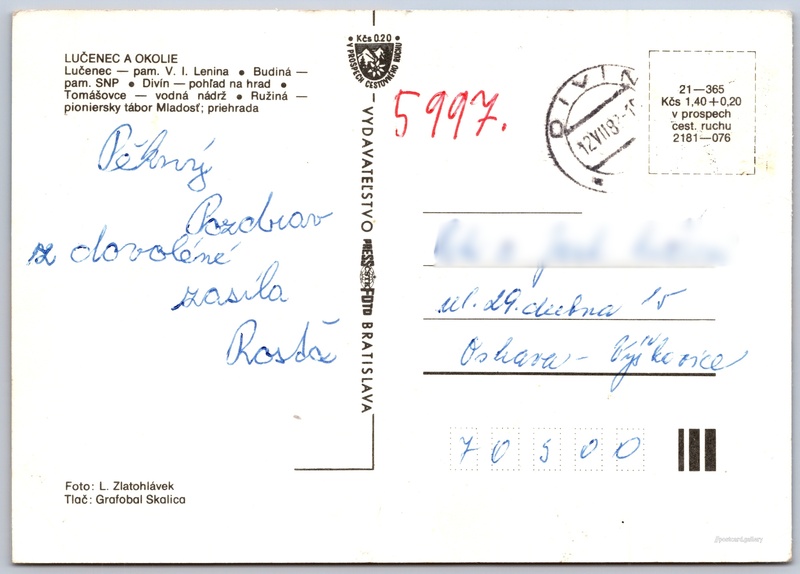 LUČENEC A OKOLIE
Lučenec — pam. V. I. Lenina ● Budiná —
pam. SNP ● Divín — pohľad na hrad ●
Tomášovce — vodná nádrž ● Ružiná —
pioniersky tábor Mladosť; priehrada
Pěkný
Pozdrav
z dovoléné
zasílá
Rosťa
Foto: L. Zlatohlávek
Tlač: Grafobal Skalica
Kčs 0.20
V PROSPECH CESTOVNÉHO RUCHU
VYDAVATEĽSTVO PRESSFOTO BRATISLAVA
5997.
DIVÍN
12.VII.8
21—365
Kčs 1,40 + 0,20
v prospech
cest. ruchu
2181—076
ul. 29. dubna 15
Ostrava - Výškovice
70500
//postcard.gallery